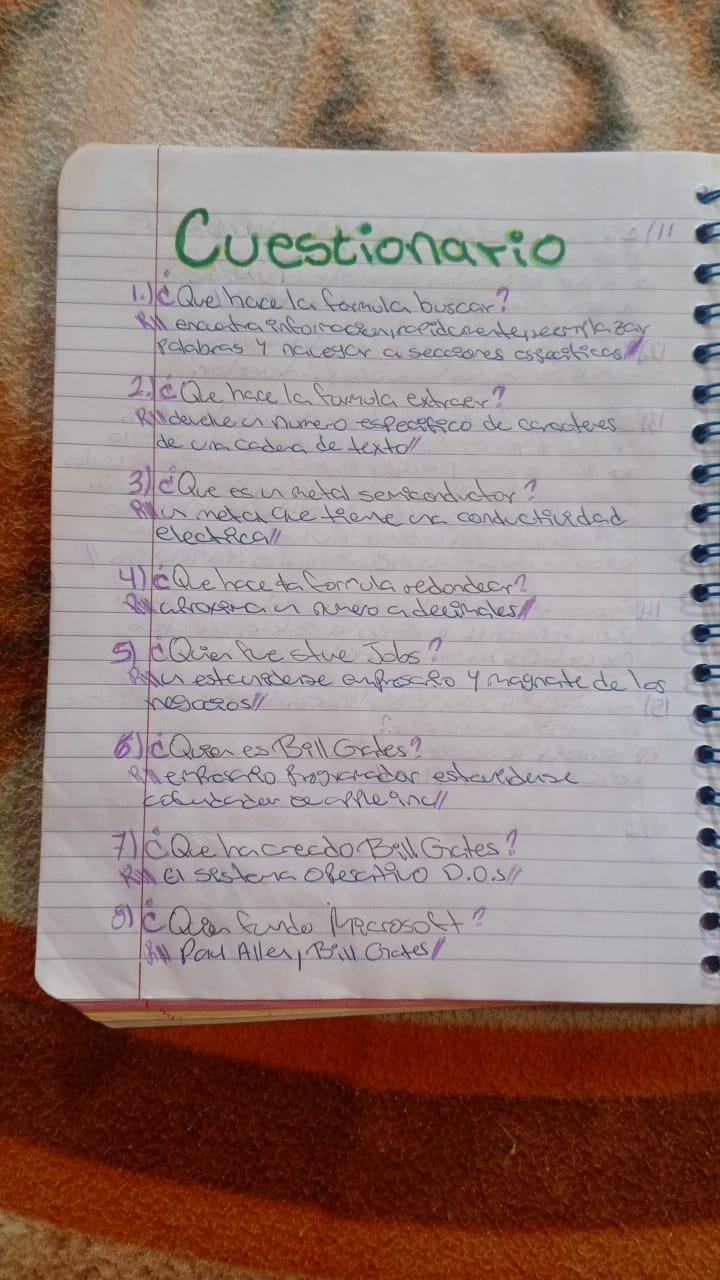 Cuestionario
1.) ¿Que hace la formula buscar?
R// encuentra informacion, rapidamente, reemplazar
palabras y navegar a secciones especificas//
2.) ¿Que hace la formula extraer?
R// devuelve un numero especifico de caracteres
de una cadena de texto//
3) ¿Que es un metal semiconductor?
R// un metal que tiene una conductividad
electrica//
4) ¿Que hace la formula redondear?
R// aproxima un numero a decimales//
5) ¿Quien fue stive Jobs?
R// un estaunidense empresario y magnate de los
negocios//
6) ¿Quien es Bill Gates?
R// empresario programador estaunidense
cofundador de apple inc//
7) ¿Que ha creado Bill Gates?
R// El sistema operativo D.O.S//
8) ¿Quien fundo Microsoft?
R// Paul Allen, Bill Gates//